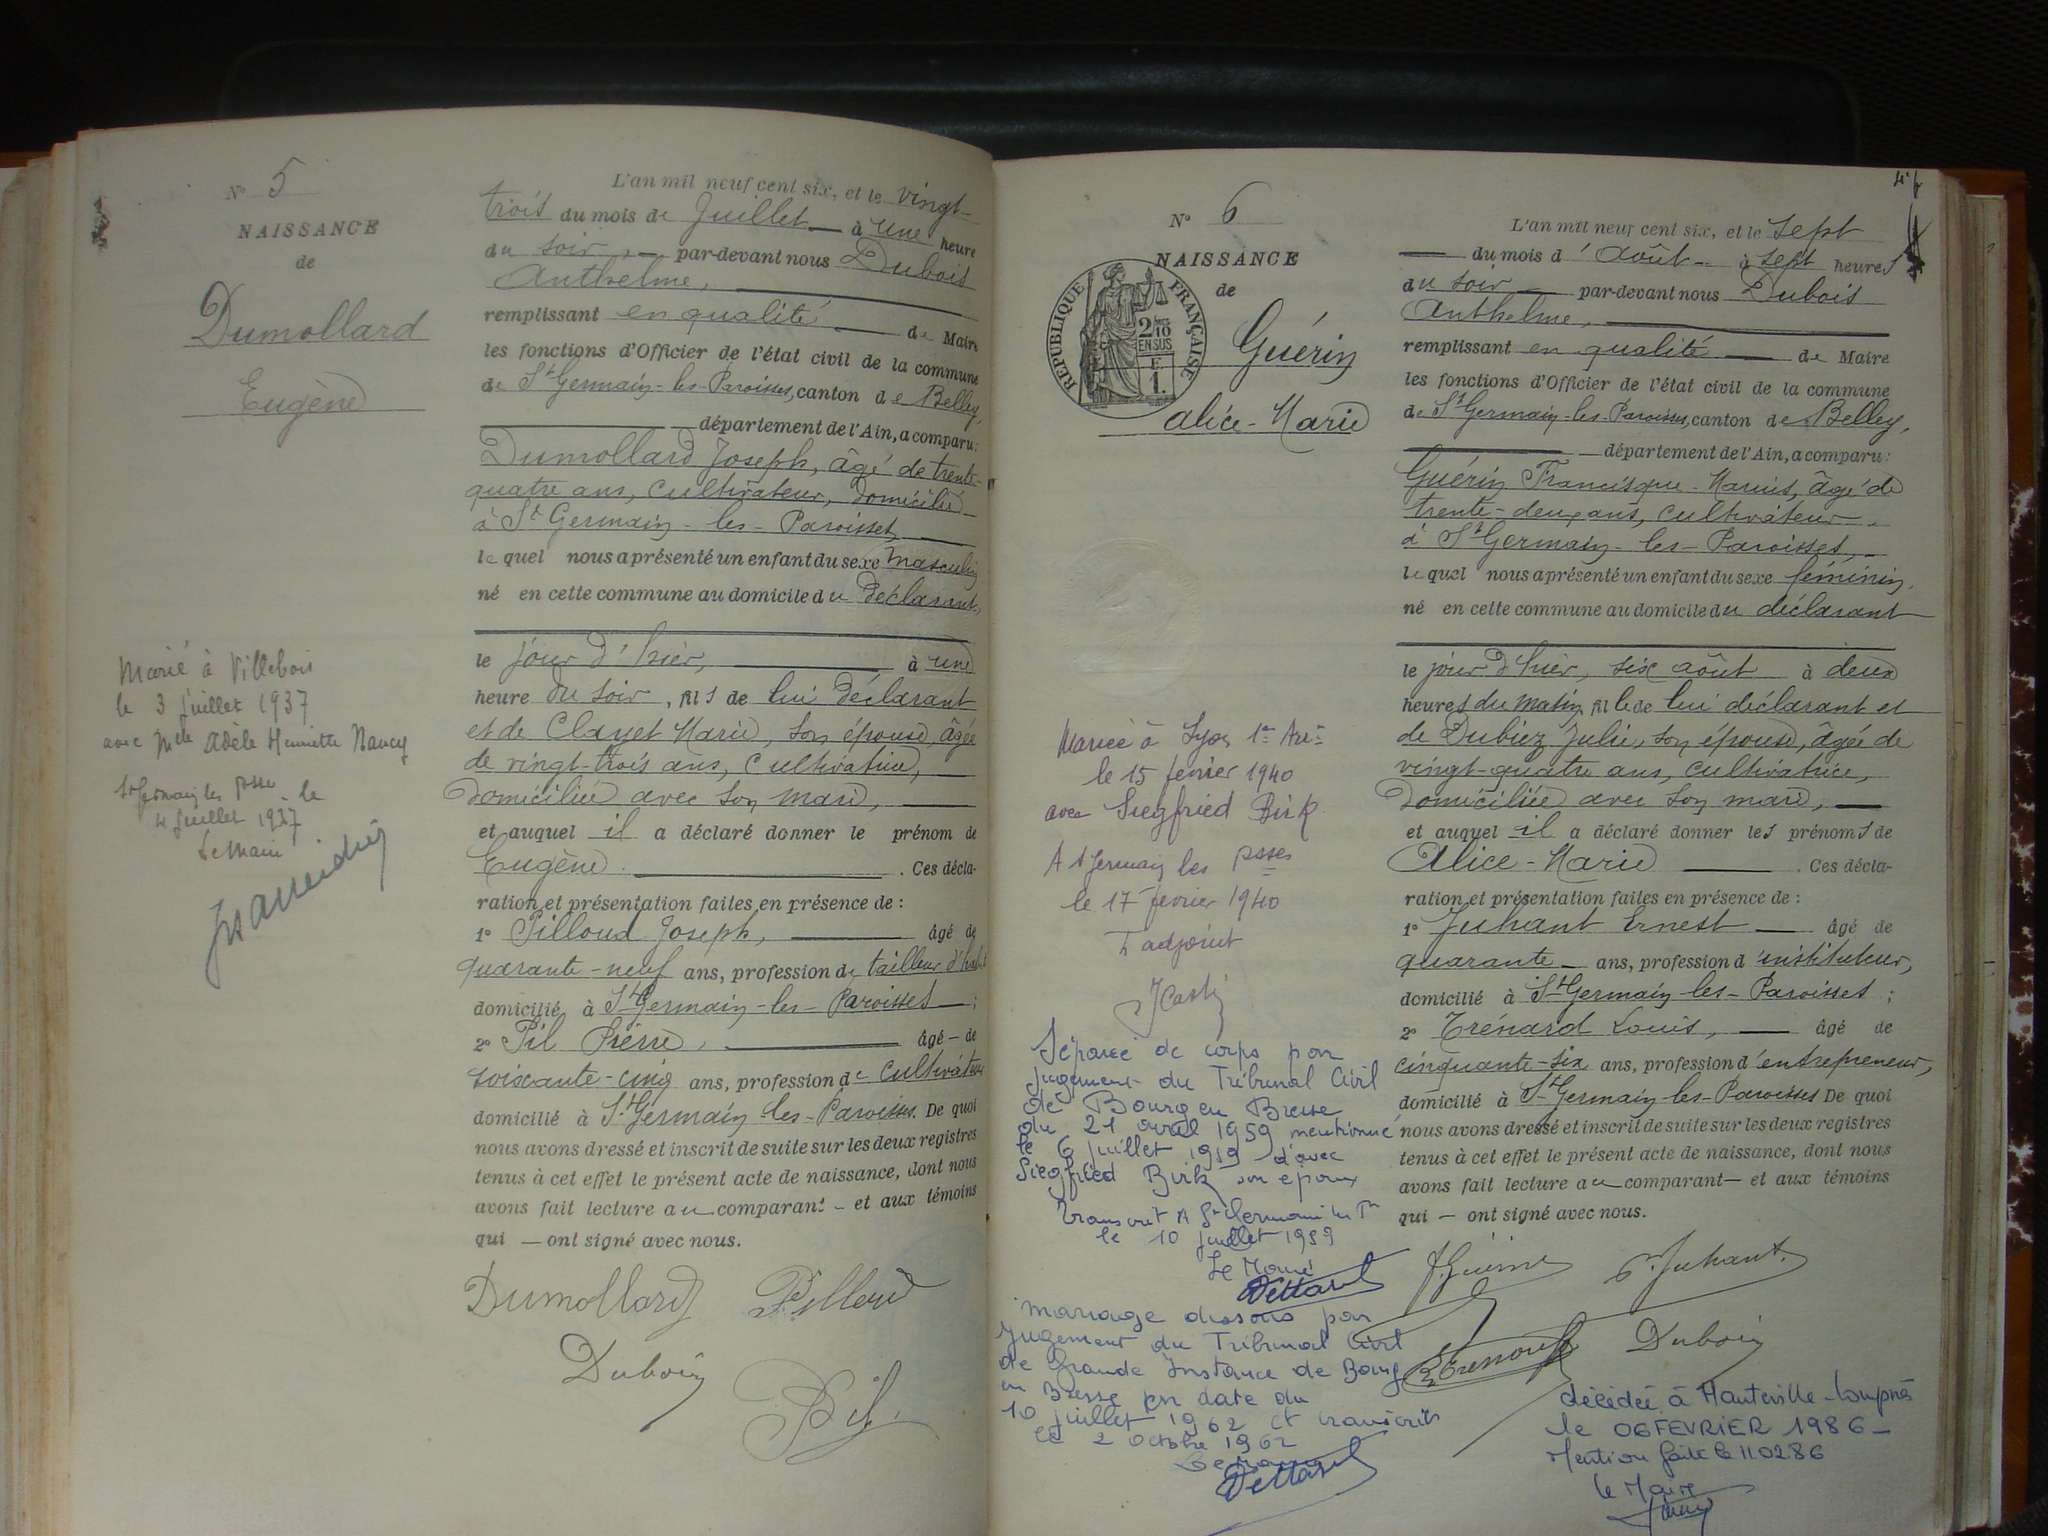 N° 5
NAISSANCE
de
Dumollard
Eugène
Marié à Villebois
le 3 juillet 1937
avec Mlle Adèle Henriette Nancy
St Germain les psses le
4 juillet 1937
Le Maire
L'an mil neuf cent six, et le vingt-
trois du mois de Juillet — à une heure
du soir, — par-devant nous Dubois
Anthelme,
remplissant en qualité — de Maire
les fonctions d'Officier de l'état civil de la commune
de St Germain-les-Paroisses, canton de Belley,
département de l'Ain, a comparu:
Dumollard Joseph, âgé de trente-
quatre ans, cultivateur, domicilié
à St Germain-les-Paroisses,
lequel nous a présenté un enfant du sexe masculin
né en cette commune au domicile du déclarant,
le jour d'hier, — à une
heure du soir, fils de lui déclarant
et de Clayet Marie, son épouse, âgée
de vingt-trois ans, cultivatrice,
domiciliée avec son mari,
et auquel il a déclaré donner le prénom de
Eugène. Ces décla-
ration et présentation faites en présence de :
1° Pilloud Joseph, — âgé de
quarante-neuf ans, profession de tailleur d'habit
domicilié à St Germain-les-Paroisses — ;
2° Pil Pierre, — âgé de
soixante-cinq ans, profession de cultivateur
domicilié à St Germain-les-Paroisses. De quoi
nous avons dressé et inscrit de suite sur les deux registres
tenus à cet effet le présent acte de naissance, dont nous
avons fait lecture au comparant — et aux témoins
qui — ont signé avec nous.
Dumollard Pilloud
Dubois Pil
N° 6
NAISSANCE
de
RÉPUBLIQUE FRANÇAISE
2/10
EN SUS
1.
Guérin
Alice-Marie
Mariée à Lyon 1er Arrt
le 15 février 1940
avec Siegfried Birk
A St Germain les psses
le 17 février 1940
L'adjoint
Séparée de corps par
jugement du Tribunal Civil
de Bourg en Bresse
du 21 avril 1959 mentionné
le 6 juillet 1959 d'avec
Siegfried Birk son époux
Transcrit A St Germain les P
le 10 juillet 1959
Le Maire
Mariage dissous par
jugement du Tribunal Civil
de Grande Instance de Bourg
en Bresse en date du
10 juillet 1962 et transcrits
le 2 Octobre 1962
Le Maire
L'an mil neuf cent six, et le sept
— du mois d'Août — à sept heures
du soir — par-devant nous Dubois
Anthelme,
remplissant en qualité — de Maire
les fonctions d'Officier de l'état civil de la commune
de St Germain-les-Paroisses, canton de Belley,
département de l'Ain, a comparu:
Guérin Francisque-Marius, âgé de
trente-deux ans, cultivateur
à St Germain-les-Paroisses,
lequel nous a présenté un enfant du sexe féminin,
né en cette commune au domicile du déclarant
le jour d'hier, six août à deux
heures du matin, fille de lui déclarant et
de Dubiez Julie, son épouse, âgée de
vingt-quatre ans, cultivatrice,
domiciliée avec son mari,
et auquel il a déclaré donner les prénoms de
Alice-Marie — . Ces décla-
ration et présentation faites en présence de :
1° Juhant Ernest — âgé de
quarante — ans, profession d'instituteur,
domicilié à St Germain-les-Paroisses ;
2° Trénard Louis, — âgé de
cinquante-six ans, profession d'entrepreneur,
domicilié à St Germain-les-Paroisses De quoi
nous avons dressé et inscrit de suite sur les deux registres
tenus à cet effet le présent acte de naissance, dont nous
avons fait lecture au comparant — et aux témoins
qui — ont signé avec nous.
F. Guérin E. Juhant.
Dubois
décédée à Hauteville-Lompnès
le 06 FEVRIER 1986 —
Mention faite le 110286
le Maire